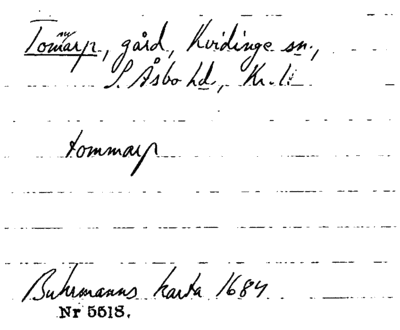 Tomarp, gård, Kvidinge sn.,
S. Åsbo hd., Kr. li
tommarp
Buhrmanns karta 1684
Nr 5518.